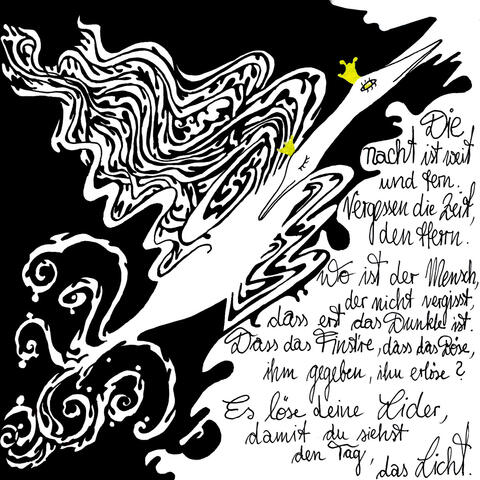 Die
nacht ist weit
und fern.
Vergessen die Zeit,
den Herrn.
Wo ist der Mensch,
der nicht vergisst,
dass erst das Dunkle ist.
Dass das Finstre, dass das Böse,
ihm gegeben, ihn erlöse?
Es löse deine Lider,
damit du siehst
den Tag,
das Licht.